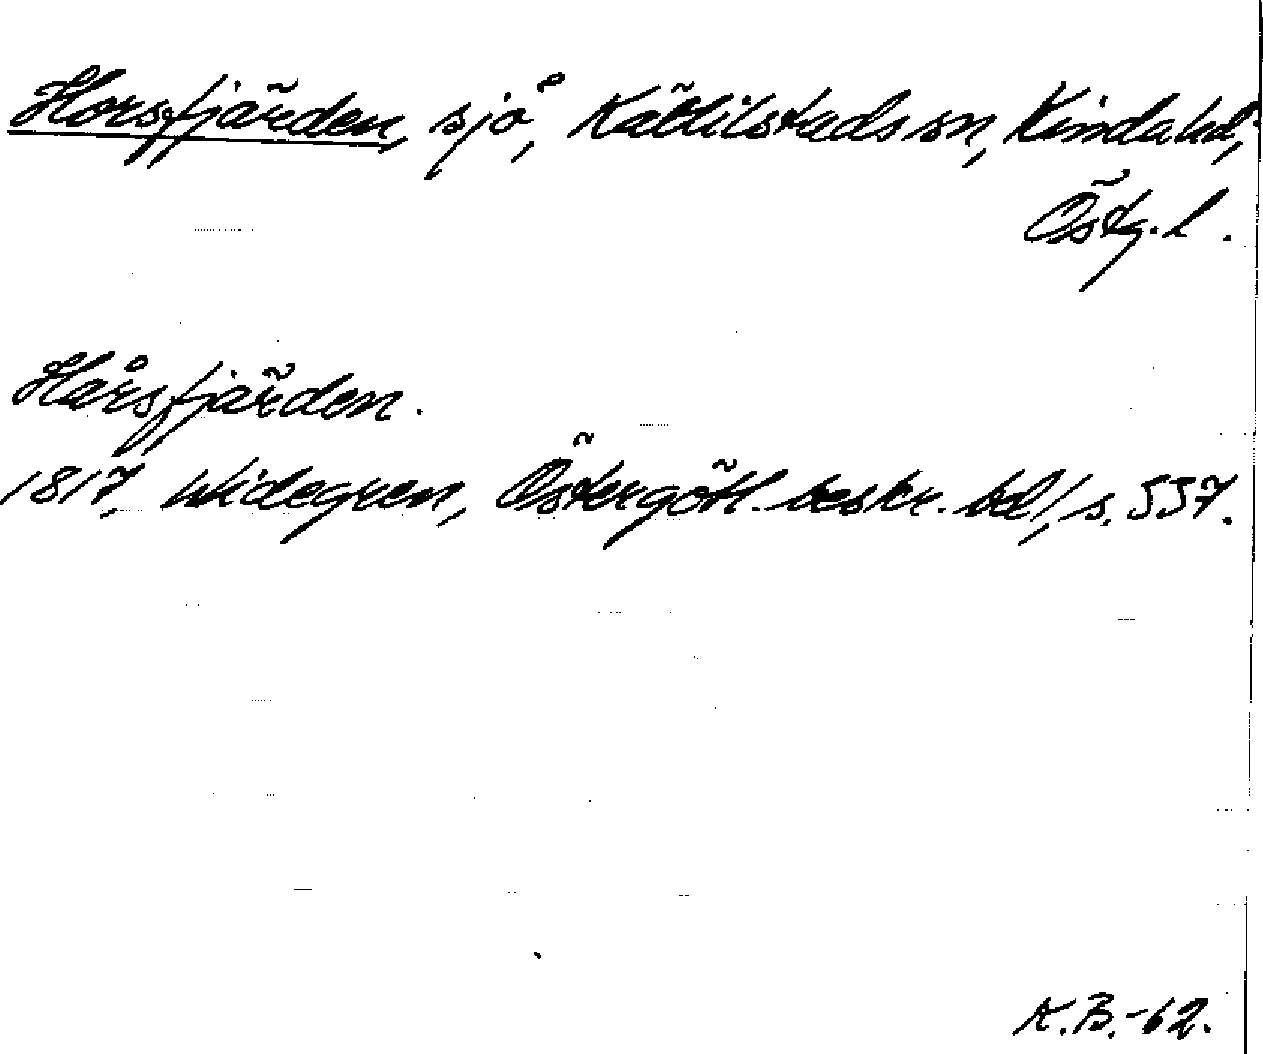 Horsfjärden, sjö, Kättilstads sn, Kinda hd,
Östg. l.
Hårsfjärden.
1817, Widegren, Östergötl. beskr. bd 1, s. 557.
K.B. -62.